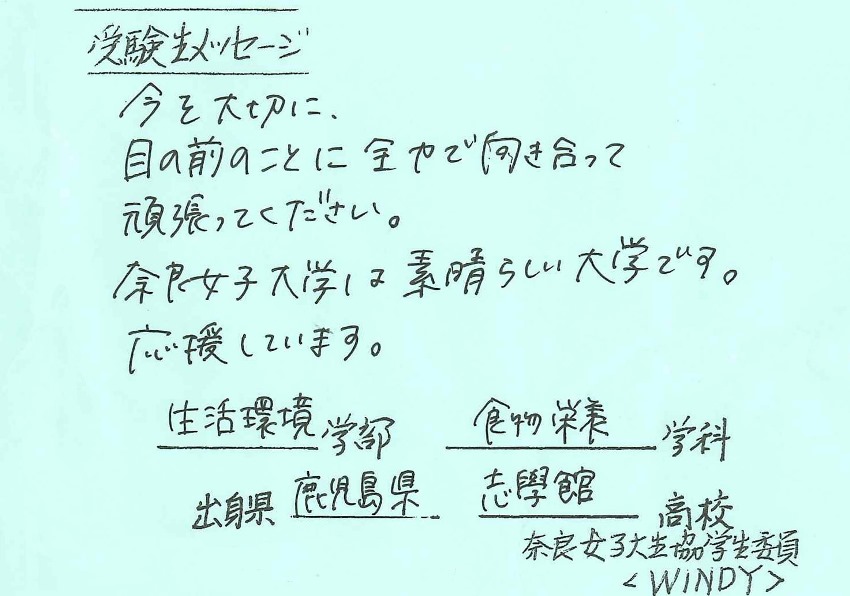 受験生メッセージ
今を大切に、
目の前のことに全力で向き合って
頑張ってください。
奈良女子大学は素晴らしい大学です。
応援しています。
生活環境学部 食物栄養学科
出身県 鹿児島県 志學館高校
奈良女子大生協学生委員
<WINDY>